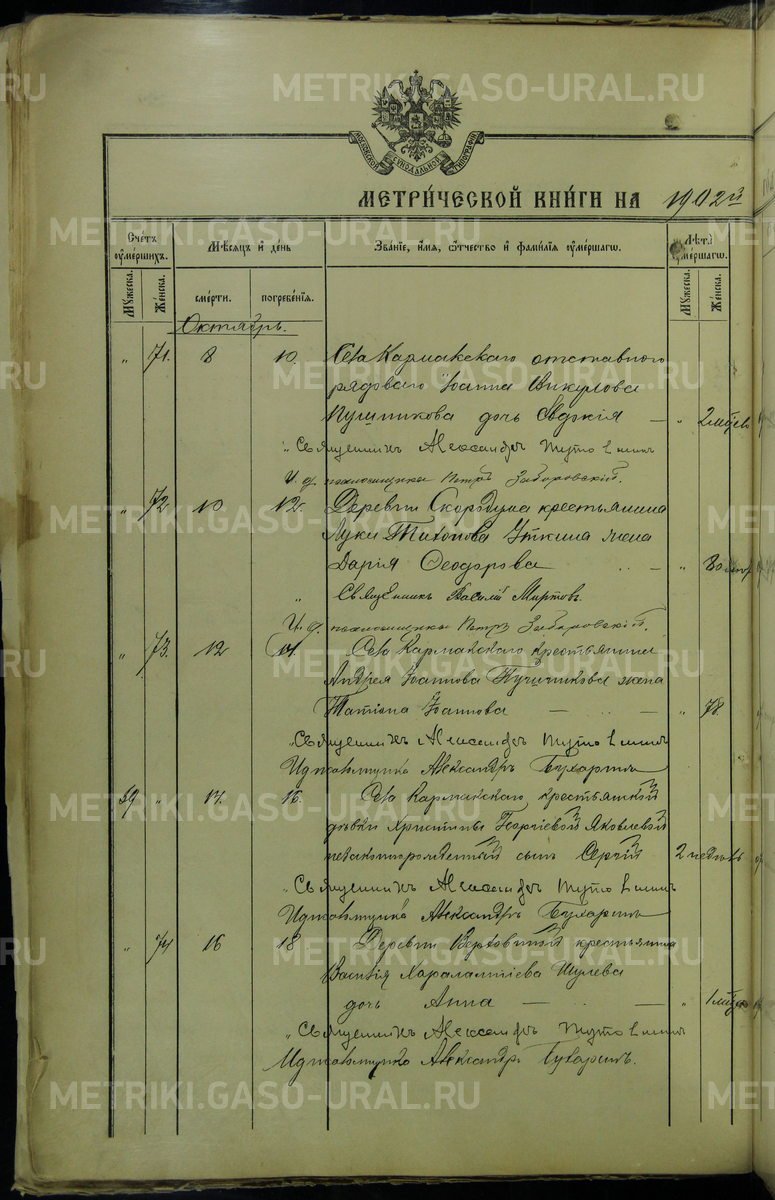 МОСКОВСКОЙ СѴНОДАЛЬНОЙ ТИПОГРАФІИ
МЕТРИ́ЧЕСКОЙ КНИ́ГИ НА 1902й
Счетъ ᲂумершихъ.
Мужеска.
Женска.
Мѣсяцъ и день
смерти.
погребенія.
Званіе, имя, отчество и фамилія ᲂумершагѡ.
Лѣта ᲂумершагѡ.
Мужеска.
Женска.
Октябрь.
" 71. 8 10. Села Кармакскаго отставного
рядового Іоанна Викулова
Пушникова дочь Евдокія — " 2 мѣсяц
" Священникъ Александръ
И. д. псаломщика Петръ Заборовскій.
" 72 10 12. Деревни Скородума крестьянина
Луки Тихонова Уткина жена
Дарія Ѳеодорова — " 80
" Священникъ Василій Миртовъ.
И. д. псаломщика Петръ Заборовскій.
" 73. 12 14. Села Кармакскаго крестьянина
Андрея Іоаннова жена
Татіана Іоаннова — — " 78.
"Священникъ Александръ
И д псаломщика Александръ Бухаринъ
39 " 14. 16. Села Кармакскаго крестьянской
дѣвки Христины Георгіевой Яковлевой
незаконнорожденный сынъ Сергій 2 недѣль
"Священникъ Александръ
И д псаломщика Александръ Бухаринъ
" 74 16 18 Деревни крестьянина
Василія Харалампіева Шулева
дочь Анна — — " 1 мѣсяц
"Священникъ Александръ
И д псаломщика Александръ Бухаринъ.
METRIKI.GASO-URAL.RU